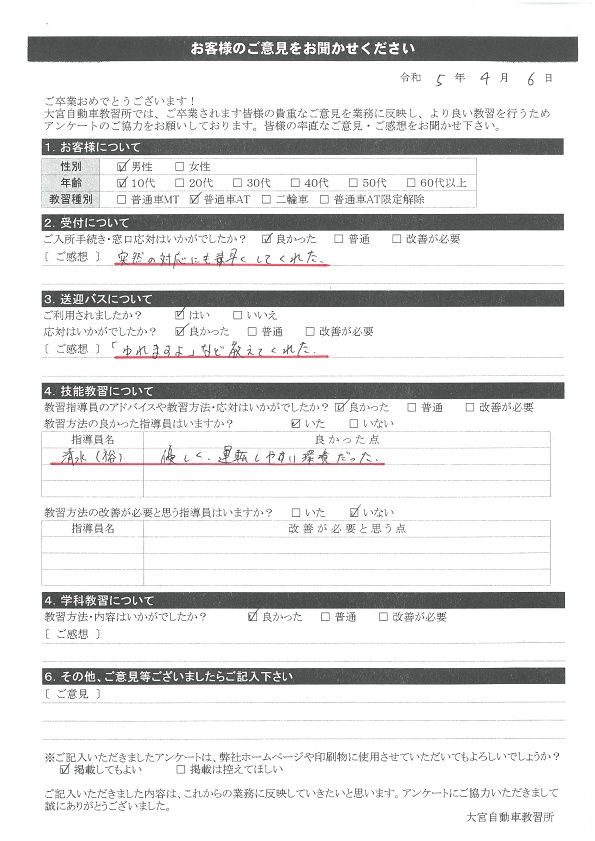 お客様のご意見をお聞かせください
令和 5 年 4 月 6 日
ご卒業おめでとうございます!
大宮自動車教習所では、ご卒業されます皆様の貴重なご意見を業務に反映し、より良い教習を行うため
アンケートのご協力をお願いしております。皆様の率直なご意見・ご感想をお聞かせ下さい。
1. お客様について
性別 ☑男性 □女性
年齢 ☑10代 □20代 □30代 □40代 □50代 □60代以上
教習種別 □普通車MT ☑普通車AT □二輪車 □普通車AT限定解除
2. 受付について
ご入所手続き・窓口応対はいかがでしたか? ☑良かった □普通 □改善が必要
[ ご感想 ] 突然の対応にも素早くしてくれた。
3. 送迎バスについて
ご利用されましたか? ☑はい □いいえ
応対はいかがでしたか? ☑良かった □普通 □改善が必要
[ ご感想 ] 「ゆれますよ」など教えてくれた。
4. 技能教習について
教習指導員のアドバイスや教習方法・応対はいかがでしたか? ☑良かった □普通 □改善が必要
教習方法の良かった指導員はいますか? ☑いた □いない
指導員名 良かった点
清水(裕) 優しく、運転しやすい環境だった。
教習方法の改善が必要と思う指導員はいますか? □いた ☑いない
指導員名 改善が必要と思う点
4. 学科教習について
教習方法・内容はいかがでしたか? ☑良かった □普通 □改善が必要
[ ご感想 ]
6. その他、ご意見等ございましたらご記入下さい
[ ご意見 ]
※ご記入いただきましたアンケートは、弊社ホームページや印刷物に使用させていただいてもよろしいでしょうか?
☑掲載してもよい □掲載は控えてほしい
ご記入いただきました内容は、これからの業務に反映していきたいと思います。アンケートにご協力いただきまして
誠にありがとうございました。
大宮自動車教習所